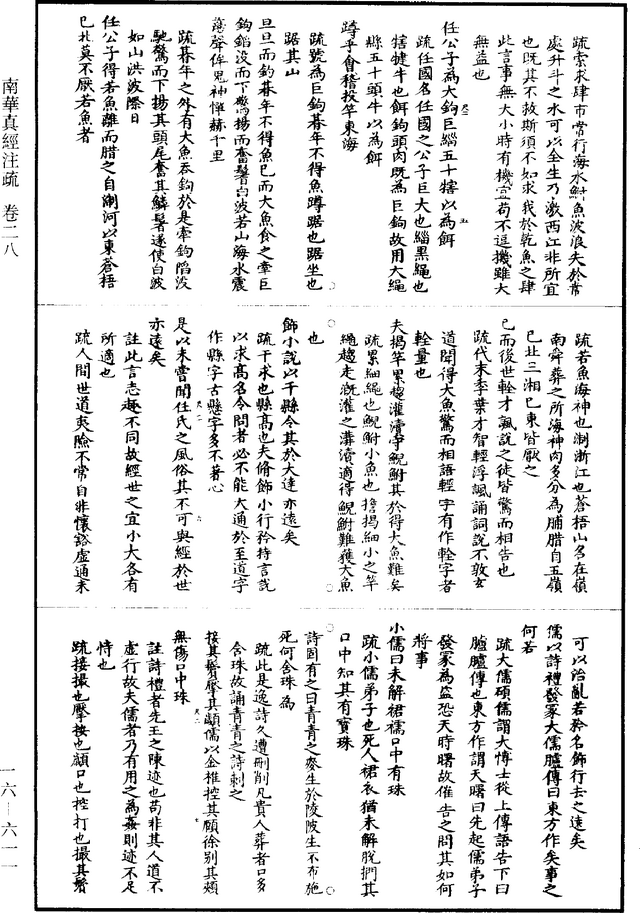 疏索求肆市常行海水鮒魚波浪失於常
處升斗之水可以全生乃激西江非所宜
也既其不救斯須不如求我於乾魚之肆
此言事無大小時有機宜苟不逗機雖大
無益也
任公子為大鈎巨緇五十犗以為餌
疏任國名任國之公子巨大也緇黑繩也
犗犍牛也餌鈎頭肉既為巨鈎故用大繩
懸五十頭牛以為餌
蹲乎會稽投竿東海
疏號為巨鈎朞年不得魚蹲踞也踞坐也
踞其山
旦旦而釣朞年不得魚已而大魚食之牽巨
鈎錎沒而下驚揚而奮鬐白波若山海水震
蕩聲侔鬼神憚赫千里
疏朞年之外有大魚吞鈎於是牽鈎陷沒
馳驚而下揚其頭尾奮其鱗鬐遂使白波
如山洪波際日
任公子得若魚離而腊之自淛河以東蒼梧
已北莫不厭若魚者
南華真經注疏 卷二八
疏若魚海神也淛浙江也蒼梧山名在嶺
南舜葬之所海神肉多分為脯腊自五嶺
已北三湘已東皆厭之
已而後世輇才諷說之徒皆驚而相告也
疏代末季葉才智輕浮諷誦詞說不敦玄
道聞得大魚驚而相語輕字有作輇字者
輇量也
夫揭竿累趨灌瀆守鯢鮒其於得大魚難矣
疏累細繩也鯢鮒小魚也擔揭細小之竿
繩趨走溉灌之溝瀆適得鯢鮒難獲大魚
也
飾小說以干縣令其於大達亦遠矣
疏干求也縣高也夫脩飾小行矜持言說
以求高名令問者必不能大通於至道字
作縣字古懸字多不著心
是以未嘗聞任氏之風俗其不可與經於世
亦遠矣
註此言志趣不同故經世之宜小大各有
所適也
疏人間世道夷險不常自非懷豁虛通未
可以治亂若矜名飾行去之遠矣
儒以詩禮發冢大儒臚傳曰東方作矣事之
何若
疏大儒碩儒謂大博士從上傳語告下曰
臚臚傳也東方作謂天曙日先起儒弟子
發冢為盜恐天時曙故催告之問其如何
將事
小儒曰未解裙襦口中有珠
疏小儒弟子也死人裙衣猶未解脫捫其
口中知其有寶珠
詩固有之曰青青之麥生於陵陂生不布施
死何含珠為
疏此是逸詩久遭刪削凡貴人葬者口多
含珠故誦青青之詩刺之
接其鬢擪其顪儒以金椎控其頤徐別其頰
無傷口中珠
註詩禮者先王之陳迹也苟非其人道不
虛行故夫儒者乃有用之為姦則迹不足
恃也
疏接撮也擪按也顪口也控打也撮其鬢
一六—六一一